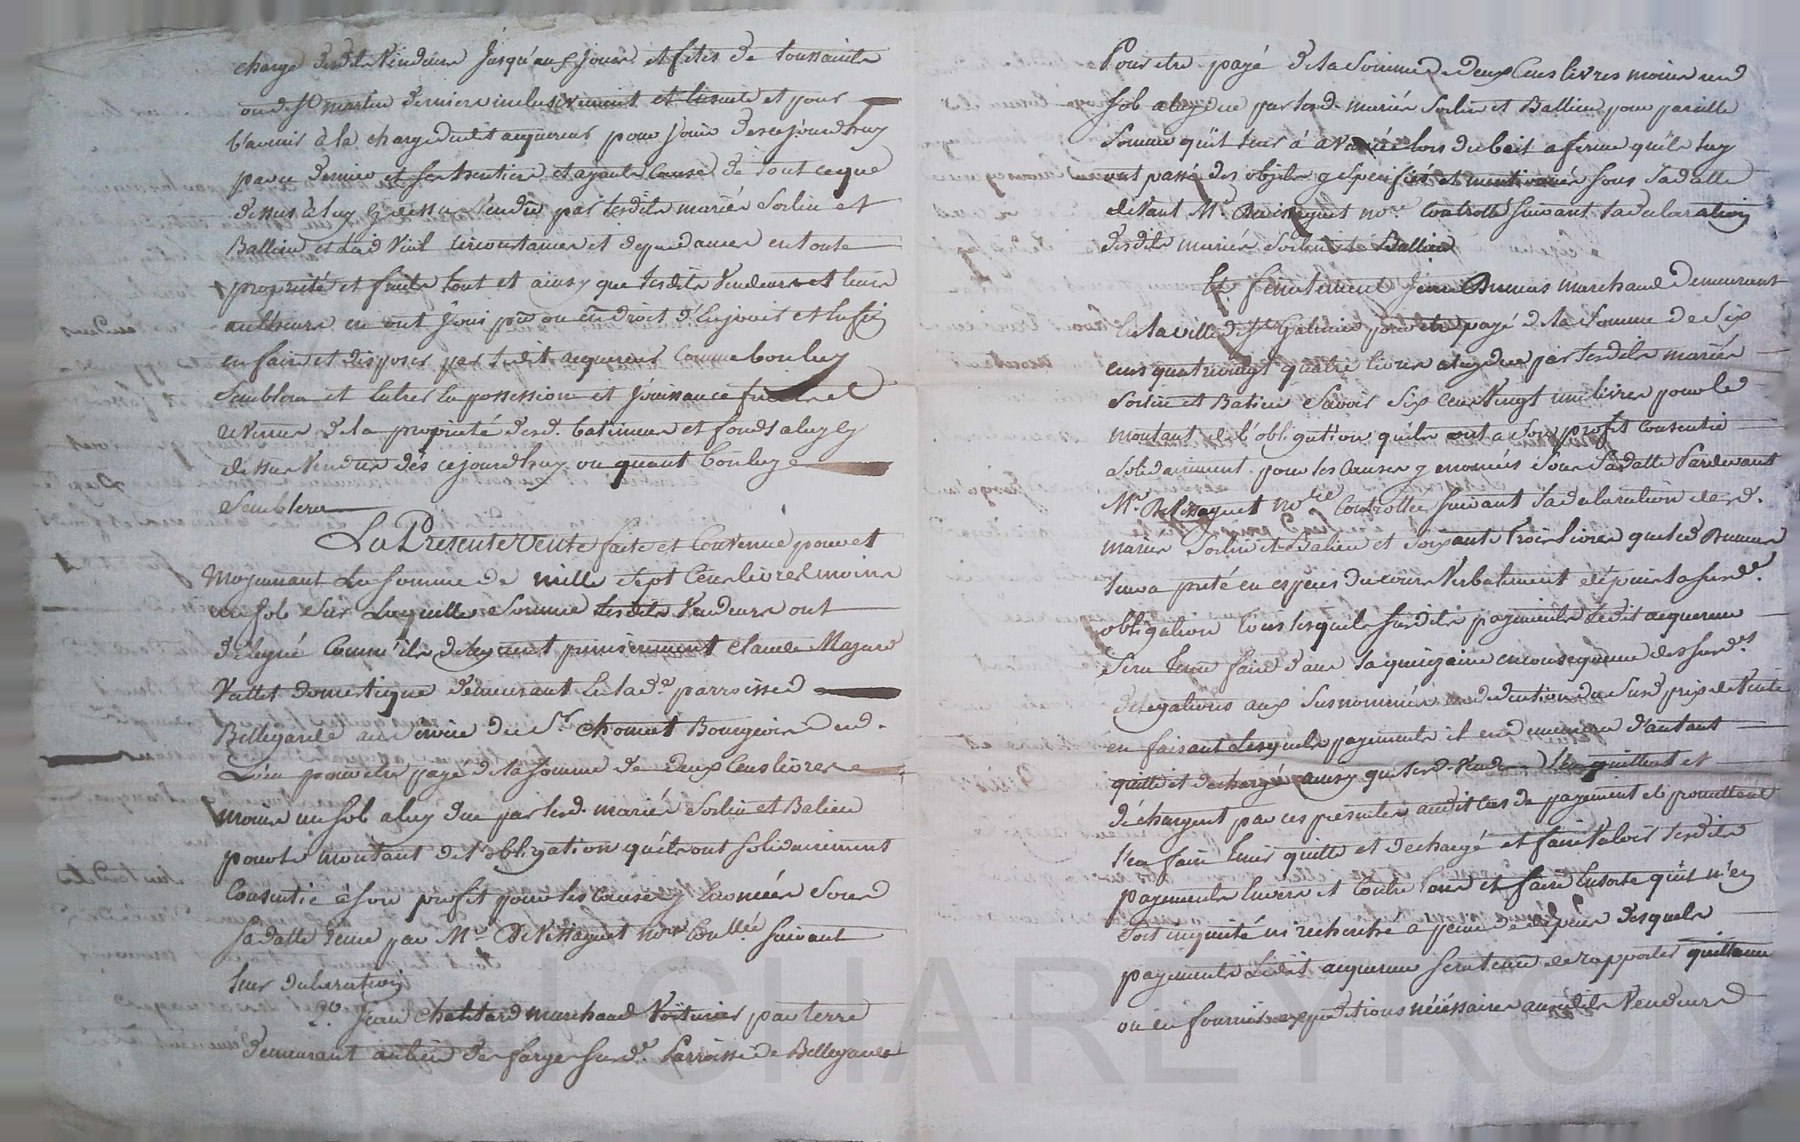 charge desdits Vendeurs Jusqu'aux jours et fêtes de toussaints
ou de St martin derniers inclusivement et ensuite et pour
l'avenir à la charge dudit acquereur pour jouir des cejourdhuy
par ce dernier et ses heritiers et ayants Cause de tout ce que
dessus à luy cy dessus Vendu par lesdits mariés Sorlin et
Ballieu et lad circonstances et dependances en toute
propriété et fruits tout et ainsy que lesdits Vendeurs et leurs
autheurs en ont joui peu ou en droit d'en jouir et enfin
en faire et disposer par ledit acquereur Comme bon luy
Semblera et entrer en possession et jouissance
revenus de la propriété desd batiments et fonds a luy cy
dessus Vendus dès cejourdhuy ou quant bon luy
Semblera
La Presente Vente faite et Convenue pour et
Moyennant La Somme de mille Sept Cens livres moins
un sol Sur Laquelle Somme lesdits Vendeurs ont
délégué Comm'ils deleguent premierement Claude
Vallet domestique demeurant en lade parroisse
Bellegarde au Service du Sr Chomat Bourgeois aud.
Lieu pour etre payé de la Somme de deux Cens livres
moins un sol a luy due par lesd. mariés Sorlin et Balieu
pour le montant de l'obligation qu'ils ont solidairement
Consentie à son profit pour les Causes y Enoncées Sous
Sa datte reçue par Me not.re Con.llée Suivant
leur declaration
2° Jean Chatelard marchand Voiturier par terre
demeurant au lieu des farges sus.de Parroisse de Bellegarde
Pour etre payé de la Somme de deux Cens livres moins un
sol a luy due par lesd. mariés Sorlin et Ballieu pour pareille
Somme qu'il leur à avancée lors du bail a ferme qu'ils luy
ont passé des objets y et mentionnés sous Sa datte
devant Me no.re Controllé Suivant la declaration
desdits mariés Sorlin et Ballieu
Et finalement Jean Brunas marchand Demeurant
En la ville de St Galmier pour etre payé de la Somme de Six
cens quatrevingt quatre livres a luy due par lesdits mariés
Sorlin et Batieu Savoir Six Cens Vingt une livres pour le
montant de l'obligation qu'ils ont a Son profit Consentie
Solidairement pour les Causes y enoncées Sous Sa datte Pardevant
Me no.re Controllée Suivant la declaration desd.
mariés Sorlin et Balieu et Soixante trois livres que led Brunas
leur a preté en especes du cours Verbalement depuis la Sus.de
obligation tous lesquels susdits payements Ledit acquereur
Sera tenu faire dans la quinzaine en consequence des sus.des
delegations aux Susnommés en deduction du Susd prix de Vente
en faisant Lesquels payements il en demeurera d'autant
quitte et dechargé ainsy que lesd. Vendeurs L'en quittent et
déchargent par ces presentes audit cas de payement et promettent
l'en faire tenir quitte et dechargé et faire Valoir lesdits
payements Envers et Contre tous et faire Ensorte qu'il n'en
Soit inquieté ni recherché a peine de depens desquels
payements Ledit acquereur Sera tenu de rapporter quittances
ou en fournir expeditions nécéssaires auxdits Vendeurs
CHAREYRON